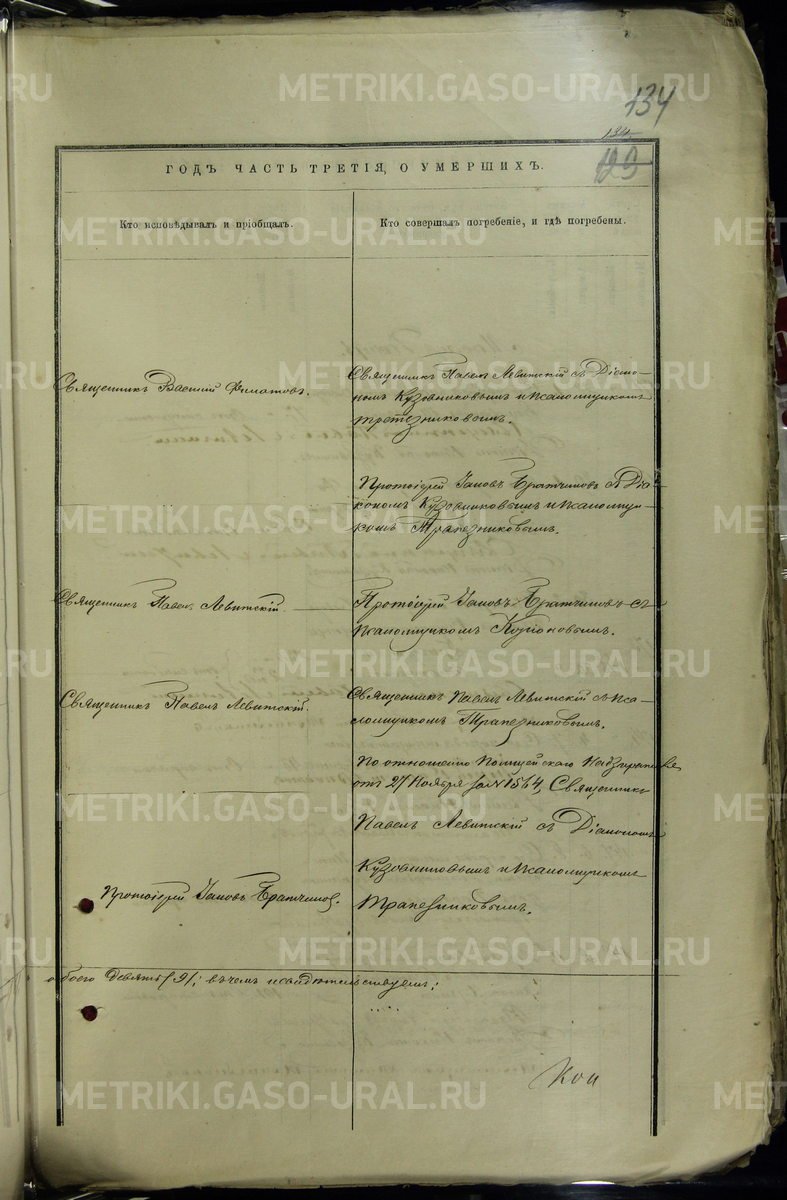 134
ГОДЪ ЧАСТЬ ТРЕТІЯ, О УМЕРШИХЪ.
Кто исповѣдывалъ и пріобщалъ.
Кто совершалъ погребеніе, и гдѣ погребены.
Священникъ Василій Филатовъ.
Священникъ Павелъ Левитскій съ Діако-
номъ Кузовниковымъ и Псаломщикомъ
Трапезниковымъ.
Протоіерей Іаковъ Братчиковъ съ Діа-
кономъ Кузовниковымъ и Псаломщи-
комъ Трапезниковымъ.
Священникъ Павелъ Левитскій.
Протоіерей Іаковъ Братчиковъ съ
Псаломщикомъ
Священникъ Павелъ Левитскій.
Священникъ Павелъ Левитскій съ Пса-
ломщикомъ Трапезниковымъ.
По отношенію Полицейскаго Надзирателя
отъ 27 Ноября за № 1564, Священникъ
Павелъ Левитскій съ Діакономъ
Кузовниковымъ и Псаломщикомъ
Трапезниковымъ.
Протоіерей Іаковъ Братчиковъ.
обоего девять (9); въ чемъ и свидѣтельствуемъ:
METRIKI.GASO-URAL.RU